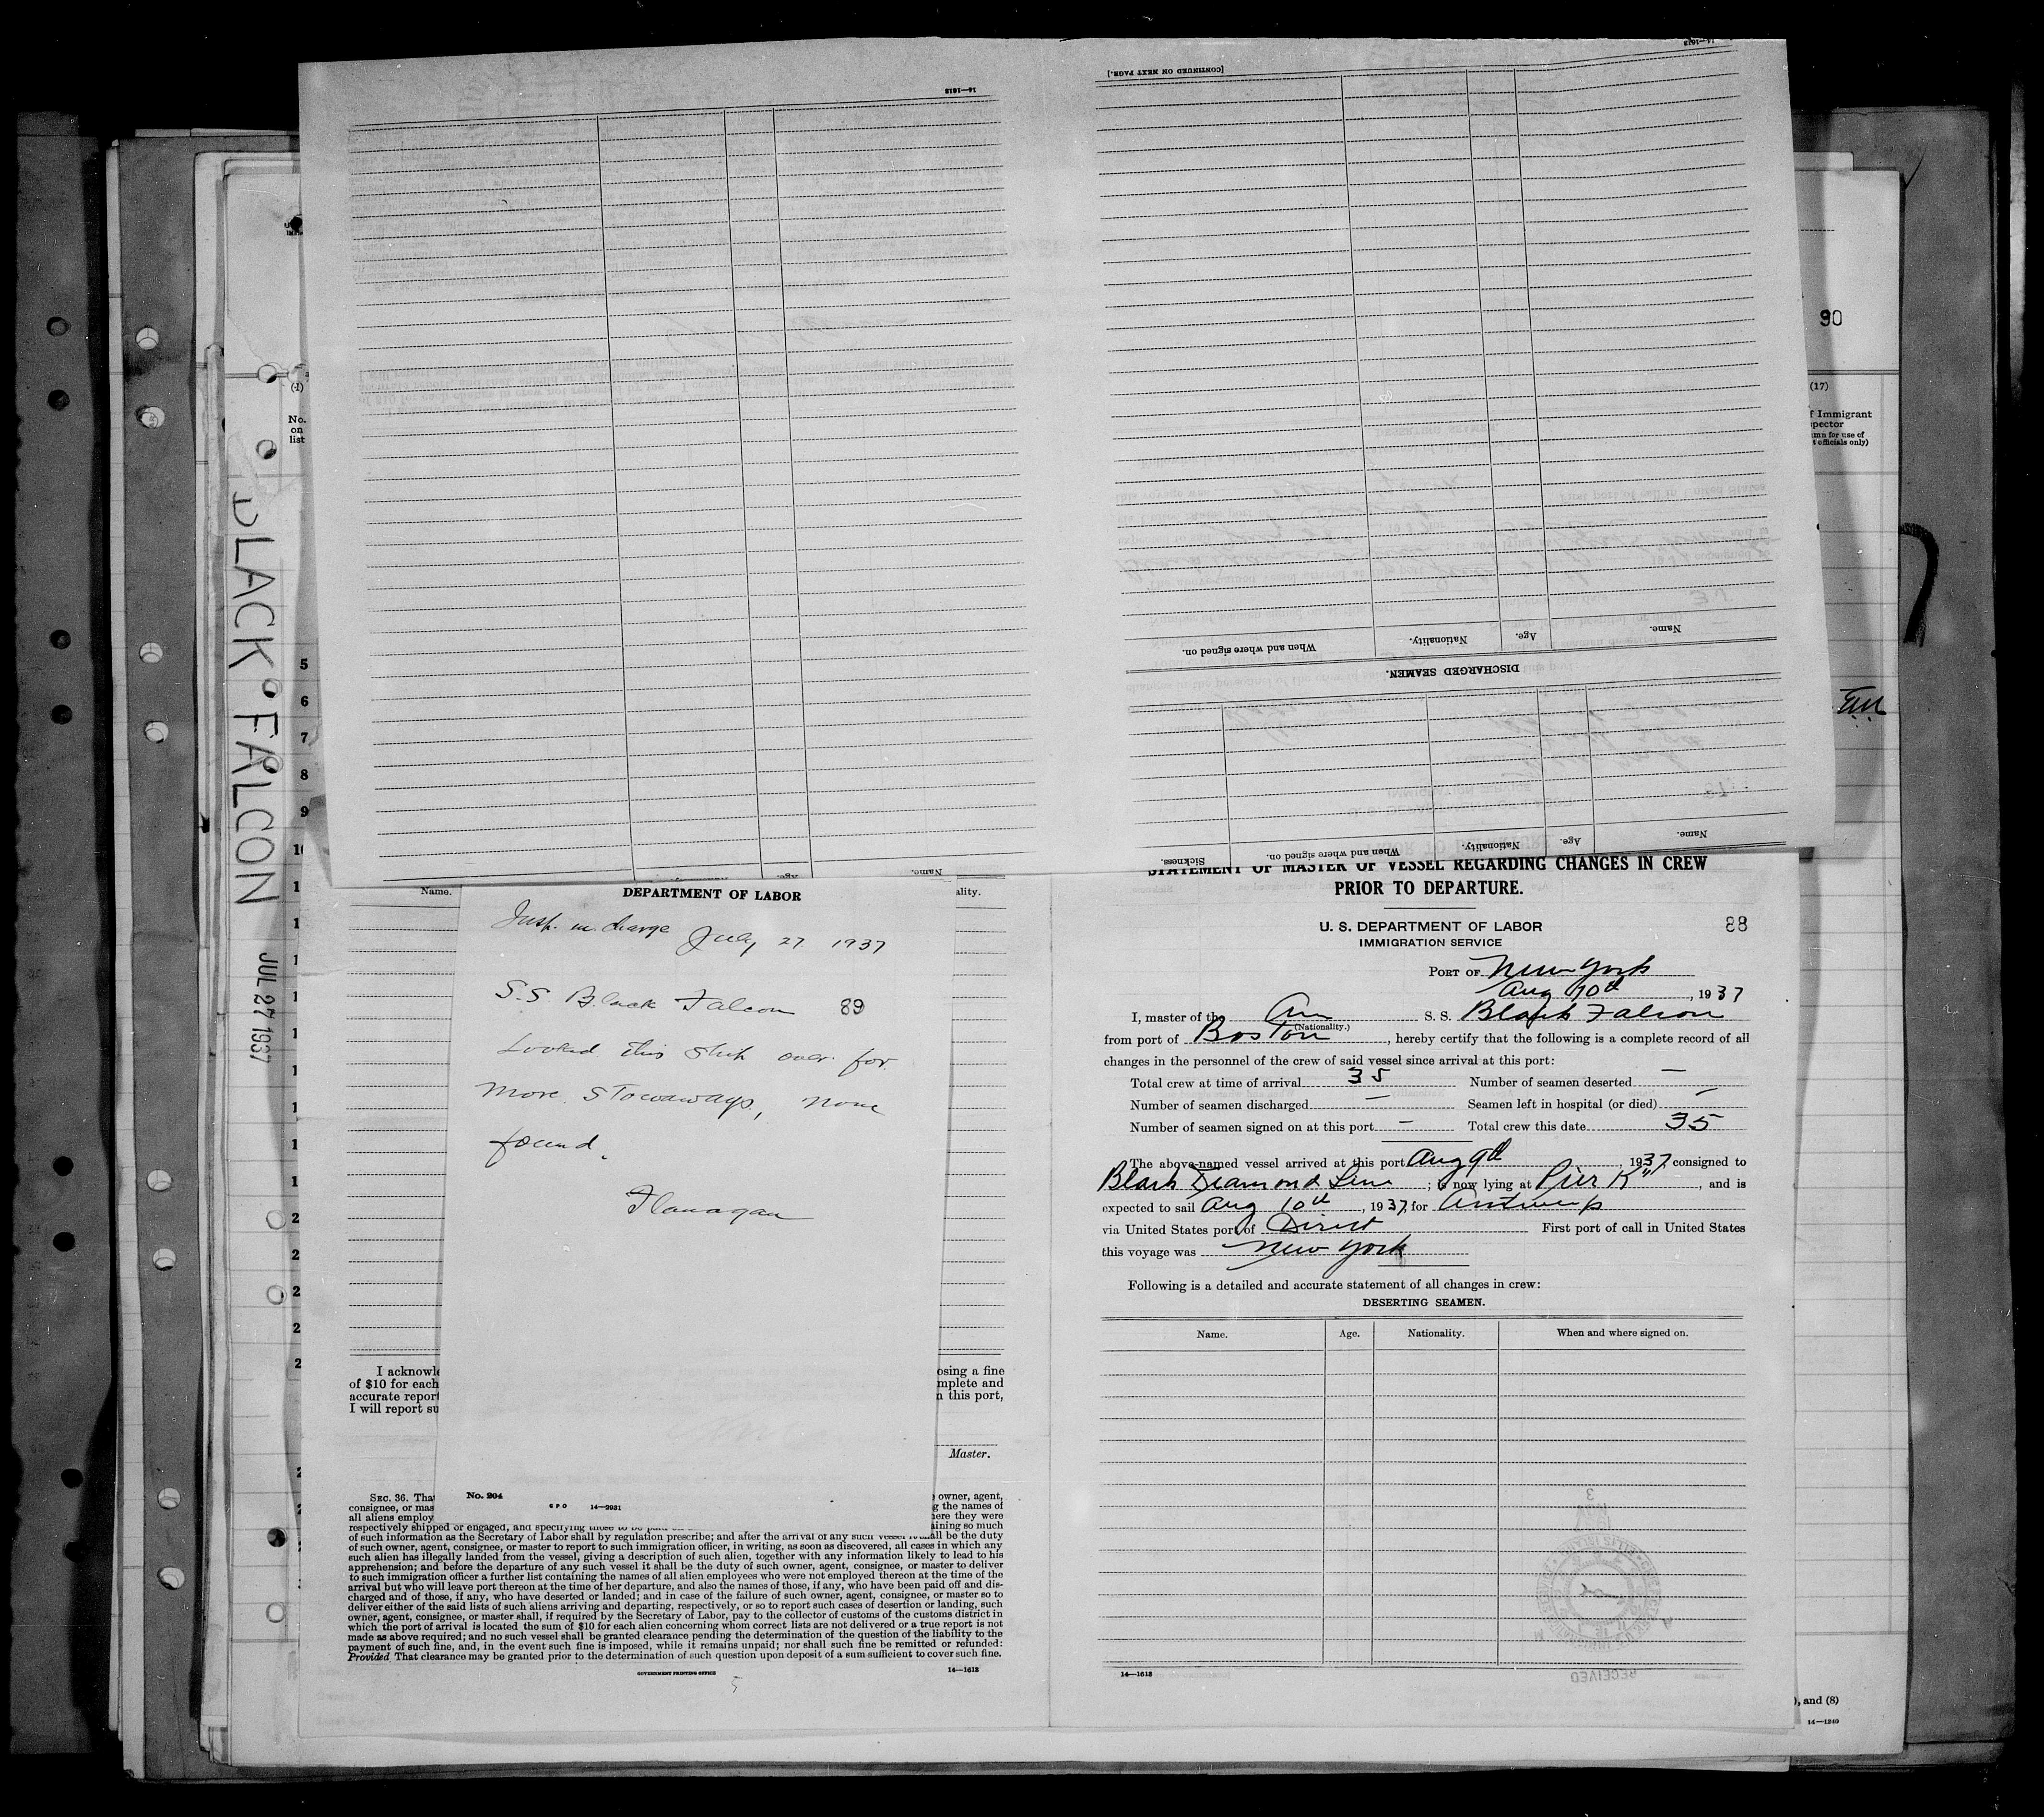 14—1613
[CONTINUED ON NEXT PAGE.]
14—1613
Name. Age. Nationality. When and where signed on.
DISCHARGED SEAMEN.
Name. Age. Nationality. When and where signed on. Sickness.
Name. Age.
90
(17)
f Immigrant
spector
umn for use of
t officials only)
(1)
No.
on
list
5
6
7
8
9
BLACK FALCON
JUL 27 1937
Name.
ality.
DEPARTMENT OF LABOR
Insp. in charge July 27 1937
S.S. Black Falcon 89
Looked this ship over for
more stowaways, none
found.
Flanagan
No. 204
GPO 14—2931
I acknowle osing a fine
of $10 for each mplete and
accurate report n this port,
I will report su
Master.
SEC. 36. That owner, agent,
consignee, or mas g the names of
all aliens employ here they were
respectively shipped or engaged, and specifying those to be paid aining so much
of such information as the Secretary of Labor shall by regulation prescribe; and after the arrival of any such vessel it shall be the duty
of such owner, agent, consignee, or master to report to such immigration officer, in writing, as soon as discovered, all cases in which any
such alien has illegally landed from the vessel, giving a description of such alien, together with any information likely to lead to his
apprehension; and before the departure of any such vessel it shall be the duty of such owner, agent, consignee, or master to deliver
to such immigration officer a further list containing the names of all alien employees who were not employed thereon at the time of the
arrival but who will leave port thereon at the time of her departure, and also the names of those, if any, who have been paid off and dis-
charged and of those, if any, who have deserted or landed; and in case of the failure of such owner, agent, consignee, or master so to
deliver either of the said lists of such aliens arriving and departing, respectively, or so to report such cases of desertion or landing, such
owner, agent, consignee, or master shall, if required by the Secretary of Labor, pay to the collector of customs of the customs district in
which the port of arrival is located the sum of $10 for each alien concerning whom correct lists are not delivered or a true report is not
made as above required; and no such vessel shall be granted clearance pending the determination of the question of the liability to the
payment of such fine, and, in the event such fine is imposed, while it remains unpaid; nor shall such fine be remitted or refunded:
Provided, That clearance may be granted prior to the determination of such question upon deposit of a sum sufficient to cover such fine.
GOVERNMENT PRINTING OFFICE 14—1613
5
STATEMENT OF MASTER OF VESSEL REGARDING CHANGES IN CREW
PRIOR TO DEPARTURE.
U. S. DEPARTMENT OF LABOR 88
IMMIGRATION SERVICE
PORT OF New York
Aug 10th, 1937
I, master of the Am S. S. Black Falcon
(Nationality.)
from port of Boston, hereby certify that the following is a complete record of all
changes in the personnel of the crew of said vessel since arrival at this port:
Total crew at time of arrival 35 Number of seamen deserted —
Number of seamen discharged — Seamen left in hospital (or died) —
Number of seamen signed on at this port — Total crew this date 35
The above-named vessel arrived at this port Aug 9th, 1937, consigned to
Black Diamond Line; is now lying at Pier K", and is
expected to sail Aug 10th, 1937, for Antwerp
via United States port of Direct First port of call in United States
this voyage was New York
Following is a detailed and accurate statement of all changes in crew:
DESERTING SEAMEN.
Name. Age. Nationality. When and where signed on.
RECEIVED
14—1613
), and (8)
14—1240